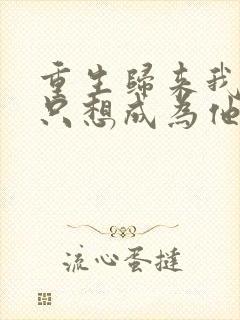 重生歸來我
只想成為他
流心蛋撻